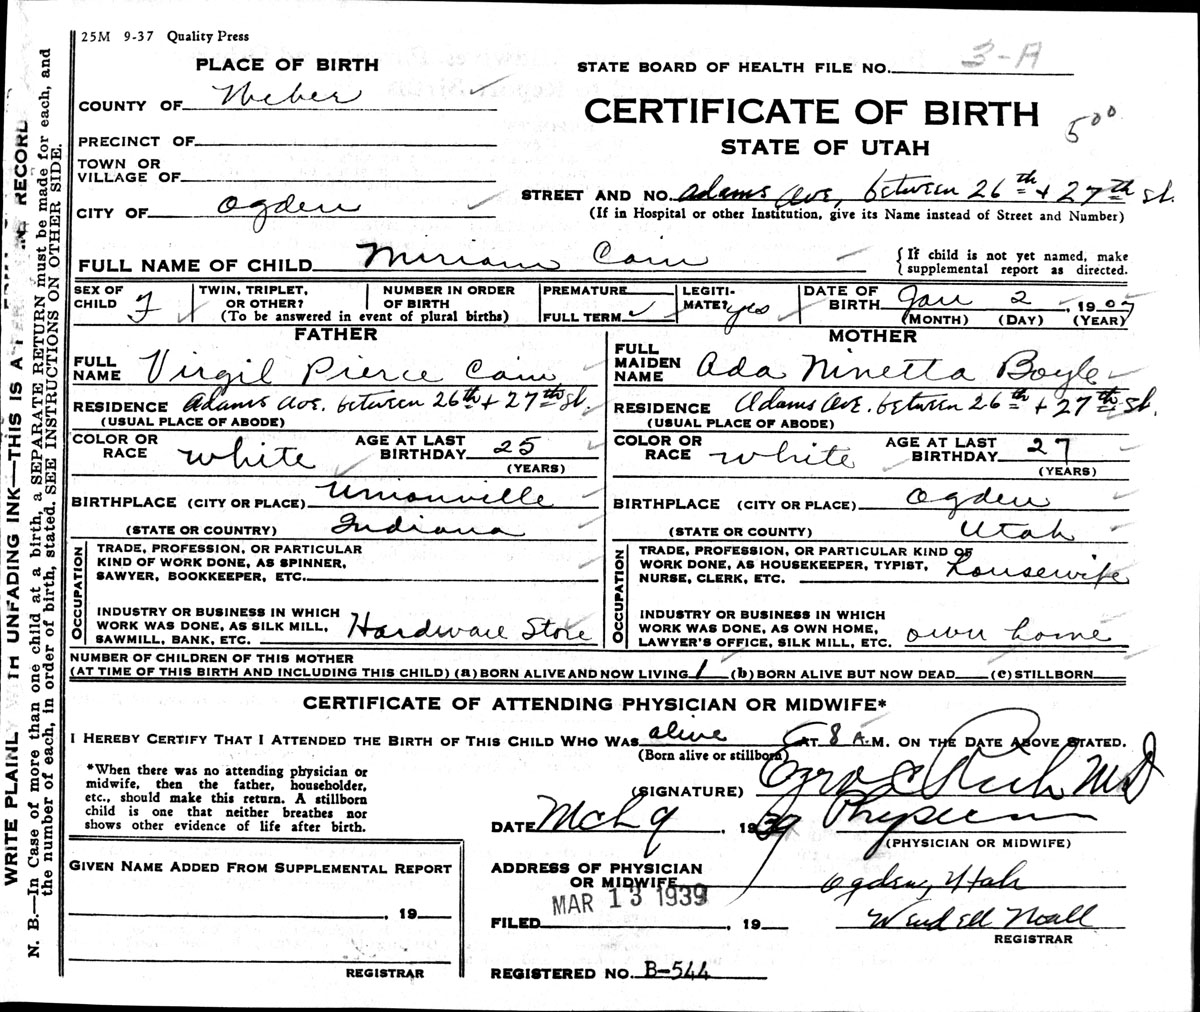 25M 9-37 Quality Press
PLACE OF BIRTH
STATE BOARD OF HEALTH FILE NO. 3-A
COUNTY OF Weber
CERTIFICATE OF BIRTH
500
PRECINCT OF
STATE OF UTAH
TOWN OR
VILLAGE OF
STREET AND NO. Adams Ave, between 26th + 27th St.
(If in Hospital or other Institution, give its Name instead of Street and Number)
CITY OF Ogden
FULL NAME OF CHILD Miriam Cain
{If child is not yet named, make
supplemental report as directed.
SEX OF
CHILD F
TWIN, TRIPLET,
OR OTHER?
NUMBER IN ORDER
OF BIRTH
(To be answered in event of plural births)
PREMATURE
FULL TERM ✓
LEGITI-
MATE? yes
DATE OF
BIRTH Jan 2, 1907
(MONTH) (DAY) (YEAR)
FATHER
FULL
NAME Virgil Pierce Cain
RESIDENCE Adams Ave. between 26th + 27th St.
(USUAL PLACE OF ABODE)
COLOR OR
RACE white
AGE AT LAST
BIRTHDAY 25
(YEARS)
BIRTHPLACE (CITY OR PLACE) Unionville
(STATE OR COUNTRY) Indiana
OCCUPATION
TRADE, PROFESSION, OR PARTICULAR
KIND OF WORK DONE, AS SPINNER,
SAWYER, BOOKKEEPER, ETC.
INDUSTRY OR BUSINESS IN WHICH
WORK WAS DONE, AS SILK MILL,
SAWMILL, BANK, ETC. Hardware Store
MOTHER
FULL
MAIDEN
NAME Ada Ninetta Boyle
RESIDENCE Adams Ave. between 26th + 27th St.
(USUAL PLACE OF ABODE)
COLOR OR
RACE white
AGE AT LAST
BIRTHDAY 27
(YEARS)
BIRTHPLACE (CITY OR PLACE) Ogden
(STATE OR COUNTY) Utah
OCCUPATION
TRADE, PROFESSION, OR PARTICULAR KIND OF
WORK DONE, AS HOUSEKEEPER, TYPIST,
NURSE, CLERK, ETC. housewife
INDUSTRY OR BUSINESS IN WHICH
WORK WAS DONE, AS OWN HOME,
LAWYER'S OFFICE, SILK MILL, ETC. own home
NUMBER OF CHILDREN OF THIS MOTHER
(AT TIME OF THIS BIRTH AND INCLUDING THIS CHILD) (a) BORN ALIVE AND NOW LIVING 1 (b) BORN ALIVE BUT NOW DEAD (c) STILLBORN
CERTIFICATE OF ATTENDING PHYSICIAN OR MIDWIFE*
I HEREBY CERTIFY THAT I ATTENDED THE BIRTH OF THIS CHILD WHO WAS alive AT 8 A.M. ON THE DATE ABOVE STATED.
(Born alive or stillborn)
*When there was no attending physician or
midwife, then the father, householder,
etc., should make this return. A stillborn
child is one that neither breathes nor
shows other evidence of life after birth.
(SIGNATURE) Ezra C Rich MD
DATE Mch 9, 1939 Physician
(PHYSICIAN OR MIDWIFE)
GIVEN NAME ADDED FROM SUPPLEMENTAL REPORT
, 19
REGISTRAR
ADDRESS OF PHYSICIAN
OR MIDWIFE Ogden, Utah
MAR 13 1939
FILED , 19 Wendell Noall
REGISTRAR
REGISTERED NO. B-544
WRITE PLAINLY WITH UNFADING INK—THIS IS A RECORD
N. B.—In Case of more than one child at a birth, a SEPARATE RETURN must be made for each, and
the number of each, in order of birth, stated. SEE INSTRUCTIONS ON OTHER SIDE.